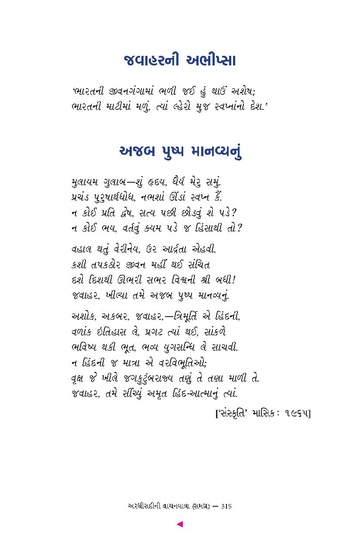 જવાહરની અભીપ્સા
'ભારતની જીવનગંગામાં ભળી જઈ હું થાઉં અશેષ;
ભારતની માટીમાં મળું, ત્યાં લ્હેરો મુજ સ્વપ્નાંનો દેશ.'
અજબ પુષ્પ માનવ્યનું
મુલાયમ ગુલાબ—શું હૃદય, ધૈર્ય મેરુ સમું.
પ્રચંડ પુરુષાર્થધોધ, નભશાં ઊંડાં સ્વપ્ન કૈં.
ન કોઈ પ્રતિ દ્વેષ, સત્ય પછી છોડવું શે પડે?
ન કોઈ ભય, વર્તવું ક્યમ પડે જ હિંસાથી તો?
વહાલ થતું વેરીનેય, ઉર આર્દ્રતા એહવી.
કશી તપકઠોર જીવન મહીં થઈ સંચિત
દશે દિશથી ઊભરી સભર વિશ્વની શ્રી બધી!
જવાહર, ખીલ્યા તમે અજબ પુષ્પ માનવ્યનું.
અશોક, અકબર, જવાહર,—ત્રિમૂર્તિ એ હિંદની,
વળાંક ઇતિહાસ લે, પ્રગટ ત્યાં થઈ, સાંકળે
ભવિષ્ય થકી ભૂત, ભવ્ય યુગસન્ધિ લે સાચવી.
ન હિંદની જ માત્રા એ વરવિભૂતિઓ;
વૃક્ષ જે ખીલે જગકુટુંબરાજ્ય તણું તે તણા માળી તે.
જવાહર, તમે સીંચ્યું અમૃત હિંદ-આત્માનું ત્યાં.
['સંસ્કૃતિ' માસિક: ૧૯૬૫]
અરધીસદીની વાચનયાત્રા (સમગ્ર) — 315